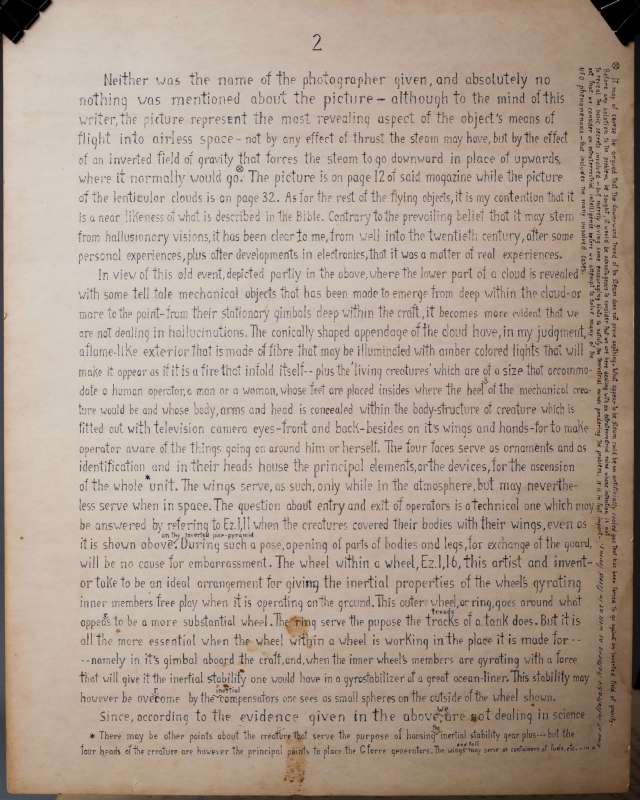 2
Neither was the name of the photographer given, and absolutely no
nothing was mentioned about the picture – although to the mind of this
writer, the picture represent the most revealing aspect of the object's means of
flight into airless space – not by any effect of thrust the steam may have, but by the effect
of an inverted field of gravity that forces the steam to go downward in place of upwards,
where it normally would go.⊗ The picture is on page 12 of said magazine while the picture
of the lenticular clouds is on page 32. As for the rest of the flying objects, it is my contention that it
is a near likeness of what is described in the Bible. Contrary to the prevailing belief that it may stem
from hallusionary visions, it has been clear to me, from well into the twentieth century, after some
personal experiences, plus after developments in electronics, that it was a matter of real experiences.
In view of this old event, depicted partly in the above, where the lower part of a cloud is revealed
with some tell tale mechanical objects that has been made to emerge from deep within the cloud–or
more to the point–from their stationary gimbals deep within the craft, it becomes more evident that we
are not dealing in hallucinations. The conically shaped appendage of the cloud have, in my judgment,
a flame-like exterior that is made of fibre that may be illuminated with amber colored lights that will
make it appear as if it is a fire that infold itself-- plus the 'living creatures' which are of a size that accommo-
date a human operator, a man or a woman, whose feet are placed insides where the heels of the mechanical crea-
ture would be and whose body, arms and head is concealed within the body-structure of creature which is
fitted out with television camera eyes–front and back–besides on it's wings and hands–for to make
operator aware of the things going on around him or herself. The four faces serve as ornaments and as
identification and in their heads house the principal elements, or the devices, for the ascension
of the whole * unit. The wings serve, as such, only while in the atmosphere, but may neverthe-
less serve when in space. The question about entry and exit of operators is a technical one which may
be answered by refering to Ez.1,11 when the creatures covered their bodies with their wings, even as
it is shown above. on the inverted pine-pyramid During such a pose, opening of parts of bodies and legs, for exchange of the guard,
will be no cause for embarrassment. The wheel within a wheel, Ez.1,16, this artist and invent-
or take to be an ideal arrangement for giving the inertial properties of the wheel's gyrating
inner members free play when it is operating on the ground. This outer wheel, or ring, goes around what
appeds to be a more substantial wheel. The ring serve the pupose the treads tracks of a tank does. But it is
all the more essential when the wheel within a wheel is working in the place it is made for --
-- namely in it's gimbal aboard the craft, and, when the inner wheel's members are gyrating with a force
that will give it the inertial stability one would have in a gyrostabilizer of a great ocean-liner. This stability may
however be overcome by the inertial compensators one sees as small spheres on the outside of the wheel shown.
Since, according to the evidence given in the above, we are not dealing in science
* There may be other points about the creature that serve the purpose of housing the inertial stability gear plus--- but the
four heads of the creature are however the principal points to place the G force generators. The wings and tail may serve as containers of fuels, etc.
⊗ It may of course be argued that the downward trend of the steam does not prove anything. What appears to be steam